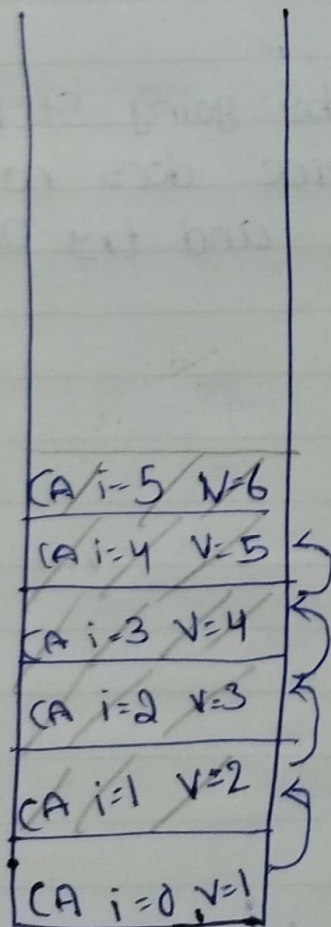 CA i=5 V=6
CA i=4 V=5
CA i=3 V=4
CA i=2 V=3
CA i=1 V=2
CA i=0, V=1